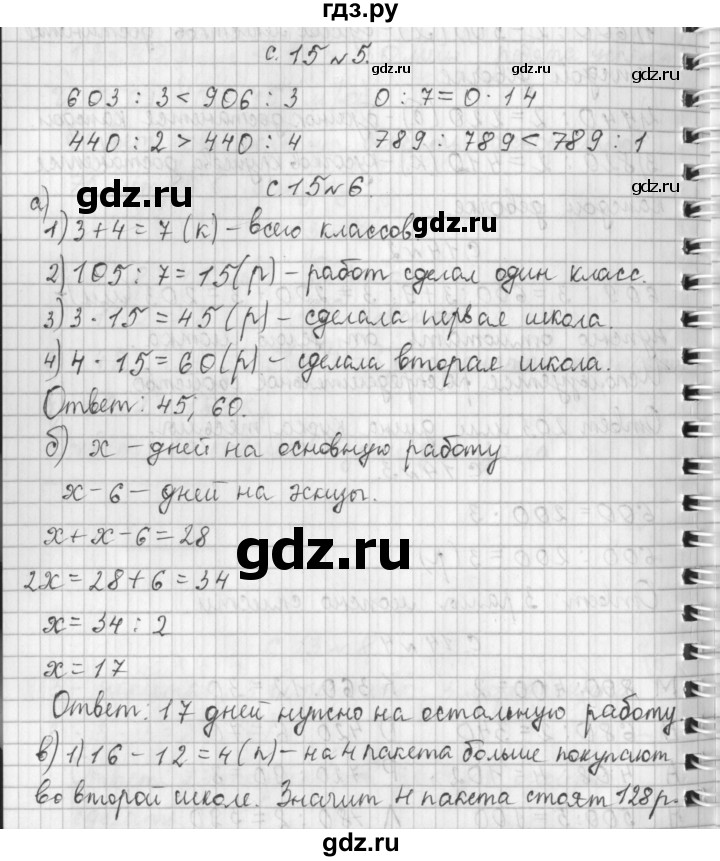 гдз.ру
с. 15 № 5.
gdz.ru
603 : 3 < 906 : 3    0 : 7 = 0 · 14
440 : 2 > 440 : 4    789 : 789 < 789 : 1
gdz.ru
с. 15 № 6
gdz.ru
а)
1) 3 + 4 = 7 (к) – всего классов
gdz.ru
2) 105 : 7 = 15 (р) – работ сделал один класс.
3) 3 · 15 = 45 (р) – сделала первая школа.
4) 4 · 15 = 60 (р) – сделала вторая школа.
Ответ: 45; 60.
б) х – дней на основную работу
х – 6 – дней на эскизы.
х + х – 6 = 28
gdz.ru
2х = 28 + 6 = 34
х = 34 : 2
х = 17
Ответ: 17 дней нужно на остальную работу.
в) 1) 16 – 12 = 4 (п) – на 4 пакета больше покупают
во второй школе. Значит 4 пакета стоят 128 р.
gdz.ru
gdz.ru
gdz.ru